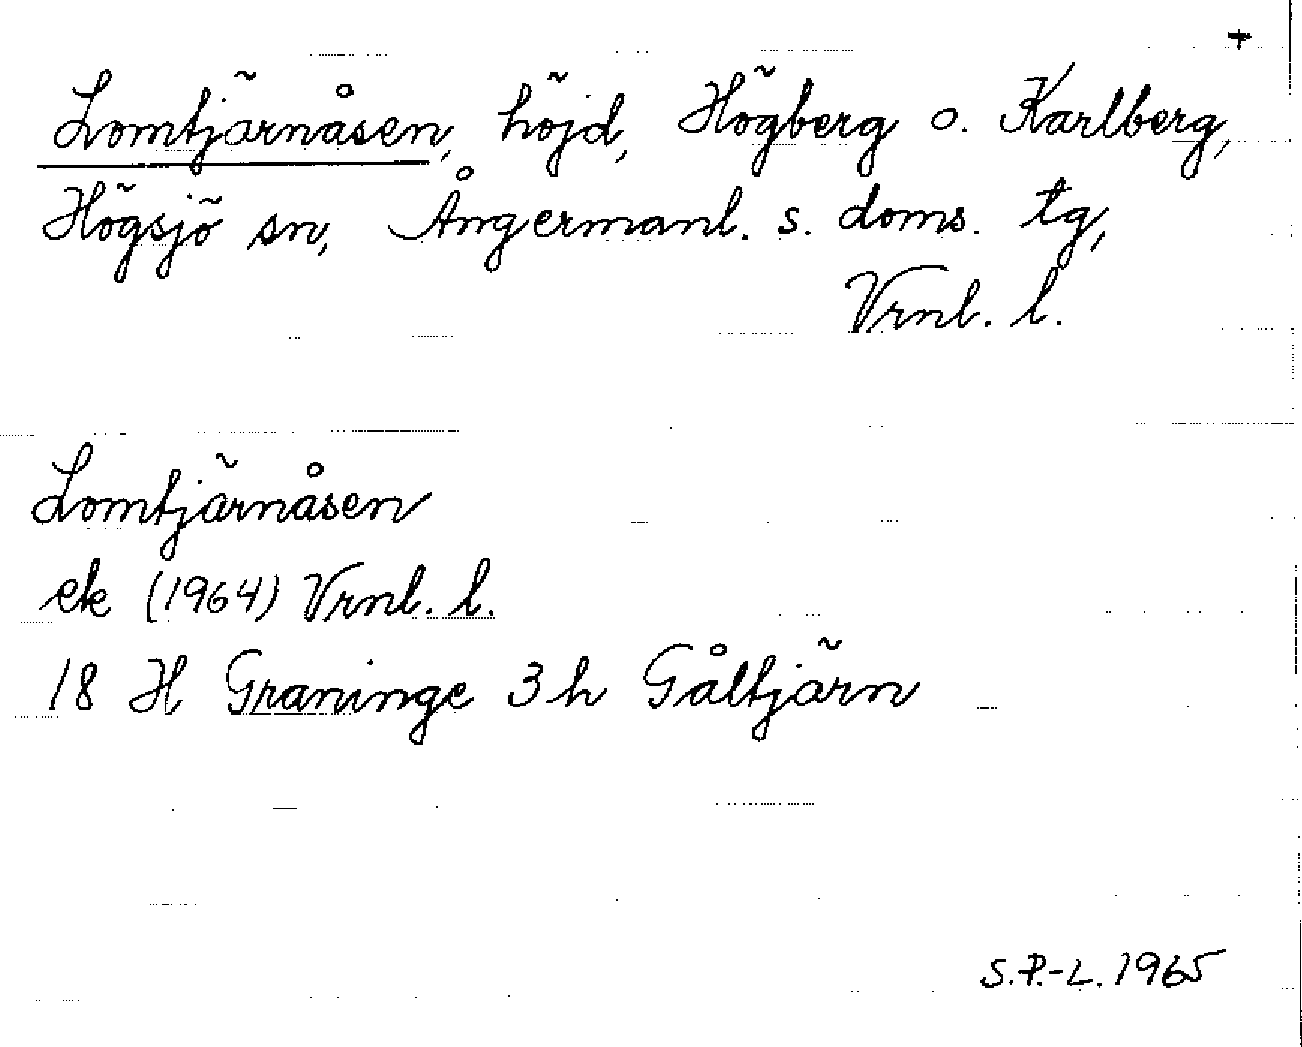 +
Lomtjärnåsen, höjd, Högberg o. Karlberg,
Högsjö sn, Ångermanl. s. doms. tg,
Vrnl. l.
Lomtjärnåsen
ek (1964) Vrnl. l.
18 H Graninge 3h Gåltjärn
S.P.-L. 1965